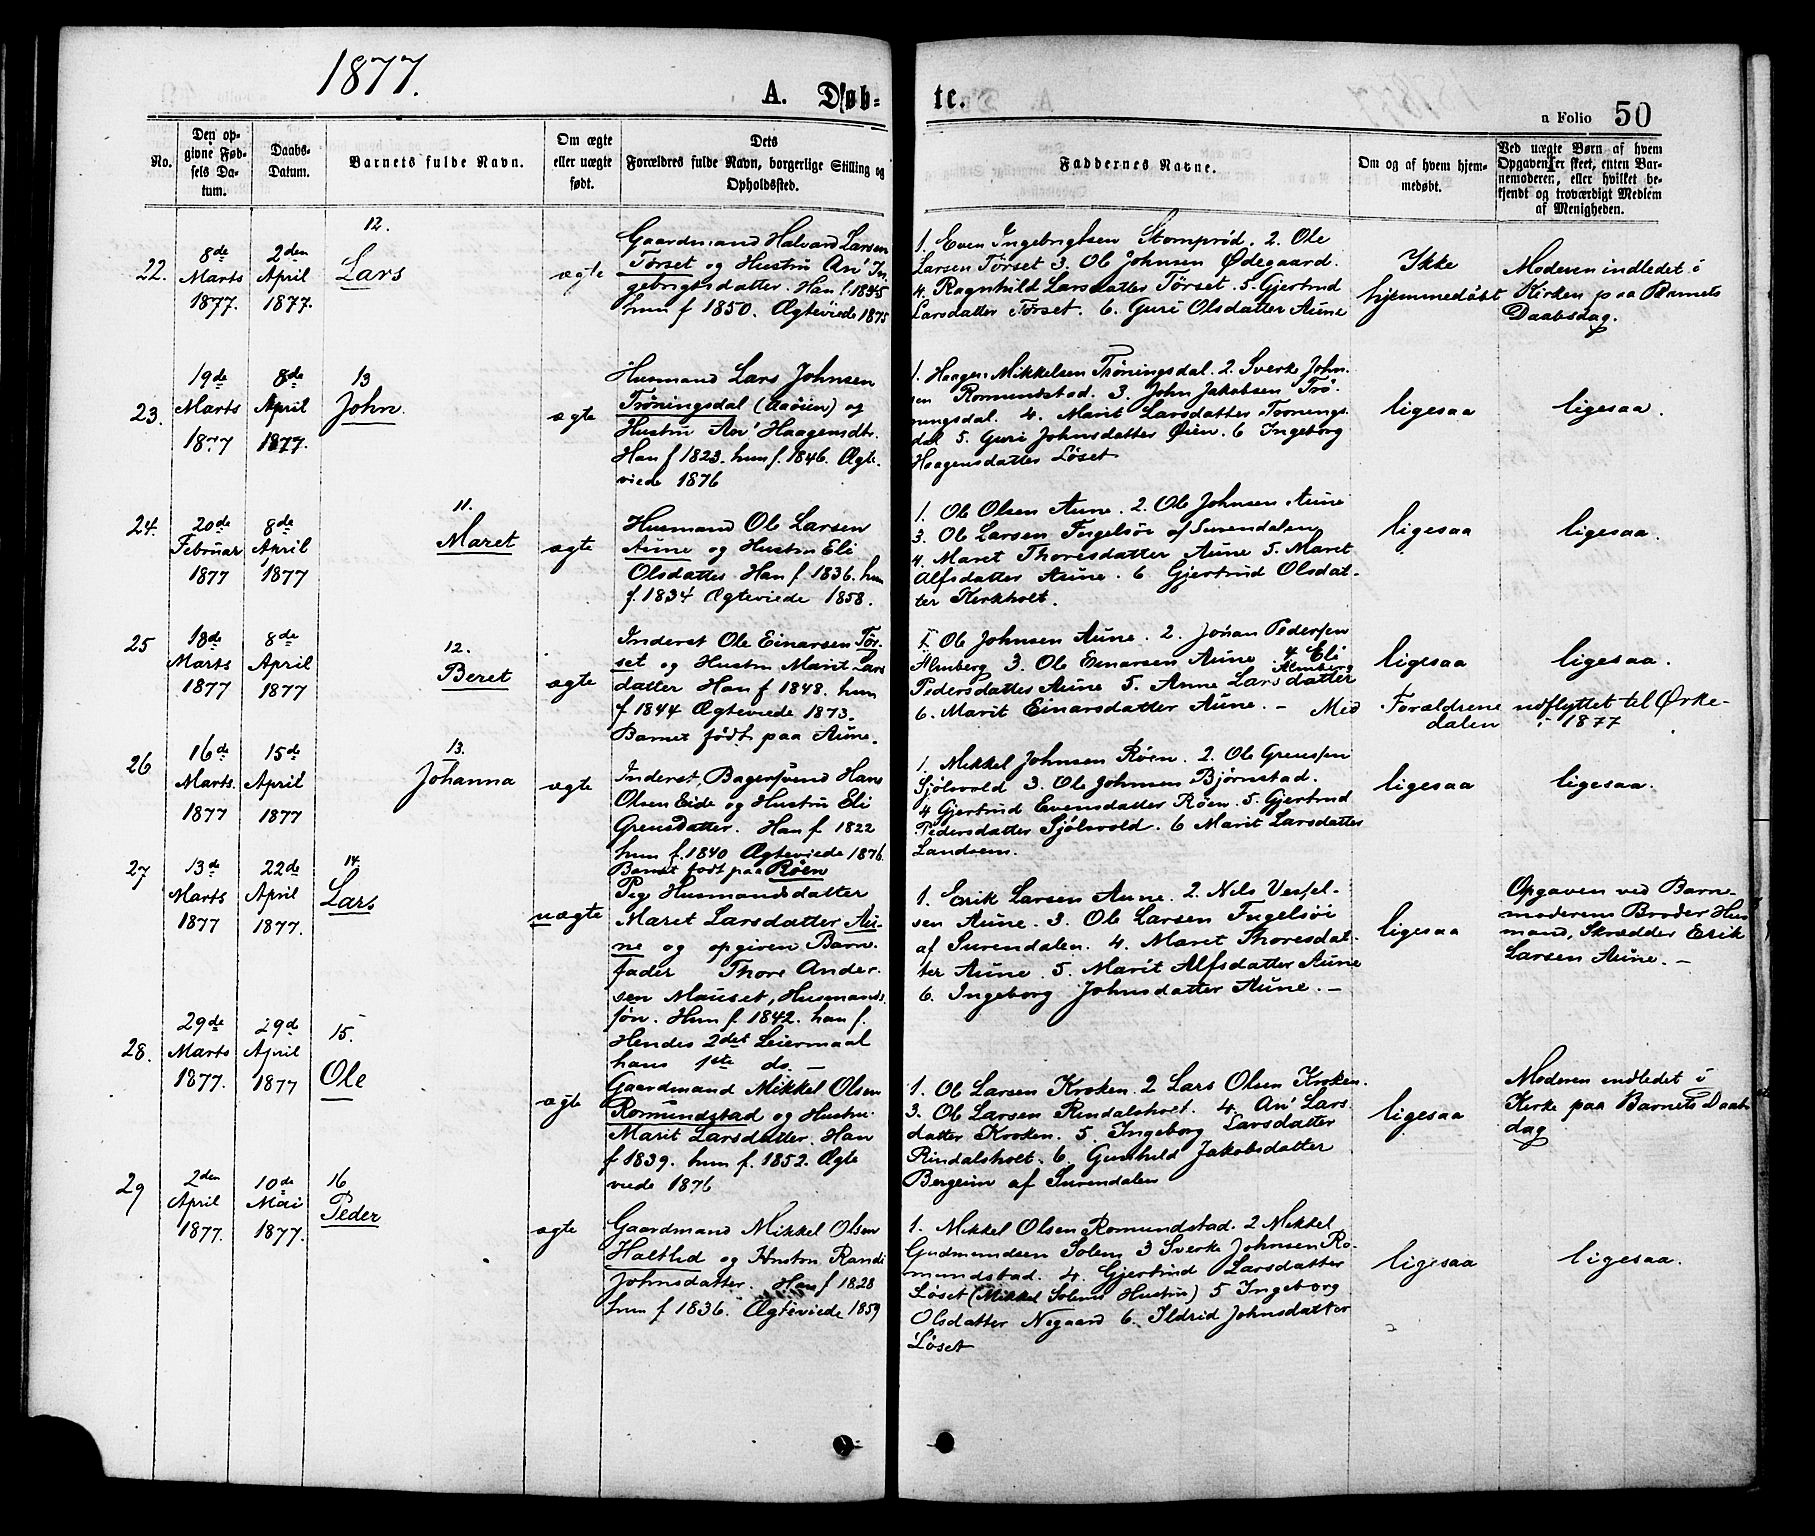 1877.
A. Døb-
te.
a Folio 50
No.
Den op-
givne Fød-
sels Da-
tum.
Daabs-
Datum.
Barnets fulde Navn.
Om ægte
eller uægte
født.
Dets
Forældres fulde Navn, borgerlige Stilling og
Opholdssted.
Faddernes Navne.
Om og af hvem hjem-
medøbt.
Ved uægte Børn af hvem
Opgaven er skeet, enten Bar-
nemoderen, eller hvilket be-
kjendt og troværdigt Medlem
af Menigheden.
22.
8de
Marts
1877.
2den
April
1877.
12.
Lars
ægte
Gaardmand Halvard Larsen
Törset og Hustru An' In-
gebrigtsdatter. Han f. 1845
hun f 1850. Ægteviede 1875
1. Even Ingebrigtsen Stomprød. 2. Ole
Larsen Törset 3. Ole Johnsen Ødegaard.
4. Ragnhild Larsdatter Törset. 5. Gjertrud
Larsdatter Törset. 6. Guri Olsdatter Aune
Ikke
hjemmedøbt
Moderen indledet i
Kirken paa Barnets
Daabsdag.
23.
19de
Marts
1877
8de
April
1877.
13
John.
ægte
Husmand Lars Johnsen
Tröningsdal (Aaöien) og
Hustru An' Haagensdtr.
Han f 1823. hun f. 1846. Ægte-
viede 1876
1. Haagen Mikkelsen Tröningsdal. 2. Sverke John-
sen Romundstad. 3. John Jakobsen Trö-
ningsdal. 4. Marit Larsdatter Tronings-
dal 5. Guri Johnsdatter Øien. 6 Ingeborg
Haagensdatter Löset
ligesaa
ligesaa.
24.
20de
Februar
1877
8de
April
1877
11.
Maret
ægte
Husmand Ole Larsen
Aune og Hustru Eli
Olsdatter. Han f. 1836. hun
f. 1834 Ægteviede 1858.
1. Ole Olsen Aune. 2. Ole Johnsen Aune
3. Ole Larsen Fugelsöi af Surendalen
4. Maret Thoresdatter Aune 5. Maret
Alfsdatter Aune. 6 Gjertrud Olsdat-
ter Kirkholt.
ligesaa
ligesaa.
25
18de
Marts
1877
8de
April
1877
12.
Beret
ægte
Inderst Ole Einarsen Tör-
set og Hustru Marit Lars
datter Han f 1848. hun
f. 1844 Ægteviede 1873.
Barnet födt paa Aune.
1. Ole Johnsen Aune. 2. Johan Pedersen
Almberg 3. Ole Einarsen Aune 4. Eli
Pedersdatter Aune 5. Anne Larsdatter Almberg
6. Marit Einarsdatter Aune. - Med Forældrene udflyttet til Örke-
dalen i 1877
ligesaa
ligesaa.
26
16de
Marts
1877
15de
April
1877
13.
Johanna
ægte
Inderst, Bagersvend Hans
Olsen Eide og Hustru Eli
Grensdatter. Han f. 1822
hun f. 1840 Ægteviede 1876.
Barnet fodt paa Röen
1. Mikkel Johnsen Röen. 2. Ole Grensen
Sjölsvold 3. Ole Johnsen Bjørnstad.
4 Gjertrud Evensdatter Röen. 5. Gjertrud
Pedersdatter Sjölsvold. 6 Marit Larsdatter
Landsem.
ligesaa
ligesaa.
27
13de
Marts
1877
22de
April
1877.
14.
Lars
uægte
Pige Husmandsdatter
Maret Larsdatter Au-
ne og opgiven Barne-
fader Thore Ander-
sen Mauset, Husmands-
sön. Hun f. 1842. han f.
Hendes 2det Leiermaal
hans 1ste do. -
1. Erik Larsen Aune. 2. Nils Vessel-
sen Aune. 3. Ole Larsen Fugelsöi
af Surendalen. 4. Maret Thoresdat-
ter Aune. 5. Marit Alfsdatter Aune
6. Ingeborg Johnsdatter Aune. -
ligesaa
Opgaven ved Barne-
moderens Broder Hus
mand, Skrædder Erik
Larsen Aune. -
28.
29de
Marts
1877.
29d
April
1877
15.
Ole
ægte
Gaardmand Mikkel Olsen
Romundstad og Hustru
Marit Larsdatter. Han
f 1839. hun f. 1852. Ægte
viede 1876
1. Ole Larsen Kroken. 2 Lars Olsen Kroken.
3. Ole Larsen Rindalsholt. 4. An' Lars-
datter Kroken. 5. Ingeborg Larsdatter
Rindalsholt. 6 Gunhild Jakobsdatter
Bergeim af Surendalen
ligesaa
Moderen indledet i
Kirke paa Barnets Daab
dag
29
2den
April
1877.
10de
Mai
1877.
16
Peder
ægte
Gaardmand Mikkel Olsen
Haltlid og Hustru Randi
Johnsdatter. Han f 1828
hun f 1836. Ægteviede 1859
1. Mikkel Olsen Romundstad. 2 Mikkel
Gudmundsen Solem 3 Sverke Johnsen Ro-
mundstad. 4. Gjertrud Larsdatter
Löset (Mikkel Solems Hustru) 5 Ingeborg
Olsdatter Negaard 6. Ildrid Johnsdatter
Löset
ligesaa
ligesaa.